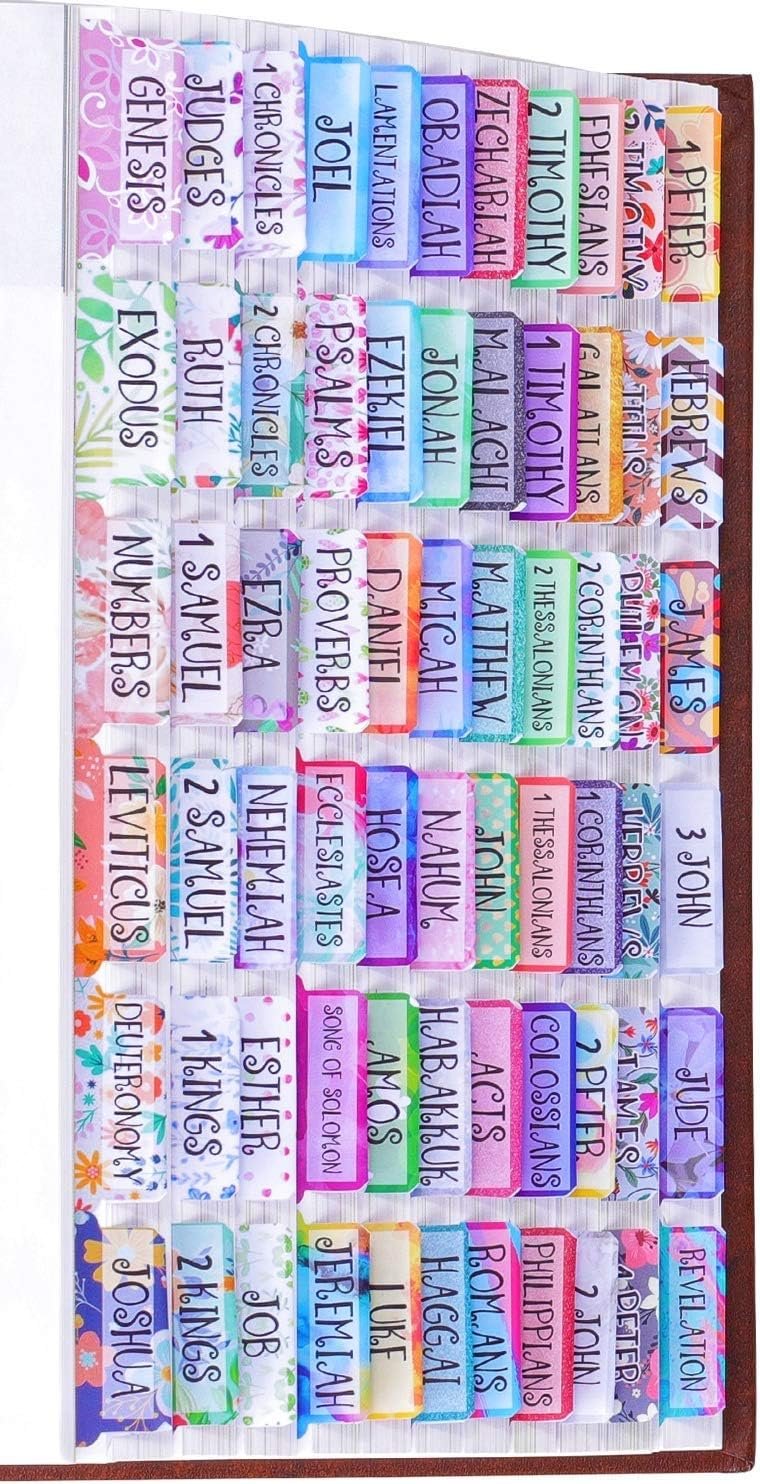 GENESIS
JUDGES
1 CHRONICLES
JOEL
LAMENTATIONS
OBADIAH
ZECHARIAH
2 TIMOTHY
EPHESIANS
2 TIMOTHY
1 PETER
EXODUS
RUTH
2 CHRONICLES
PSALMS
EZEKIEL
JONAH
MALACHI
1 TIMOTHY
GALATIANS
TITUS
HEBREWS
NUMBERS
1 SAMUEL
EZRA
PROVERBS
DANIEL
MICAH
MATTHEW
2 THESSALONIANS
2 CORINTHIANS
PHILEMON
JAMES
LEVITICUS
2 SAMUEL
NEHEMIAH
ECCLESIASTES
HOSEA
NAHUM
JOHN
1 THESSALONIANS
1 CORINTHIANS
HEBREWS
3 JOHN
DEUTERONOMY
1 KINGS
ESTHER
SONG OF SOLOMON
AMOS
HABAKKUK
ACTS
COLOSSIANS
2 PETER
JAMES
JUDE
JOSHUA
2 KINGS
JOB
JEREMIAH
LUKE
HAGGAI
ROMANS
PHILIPPIANS
2 JOHN
1 PETER
REVELATION